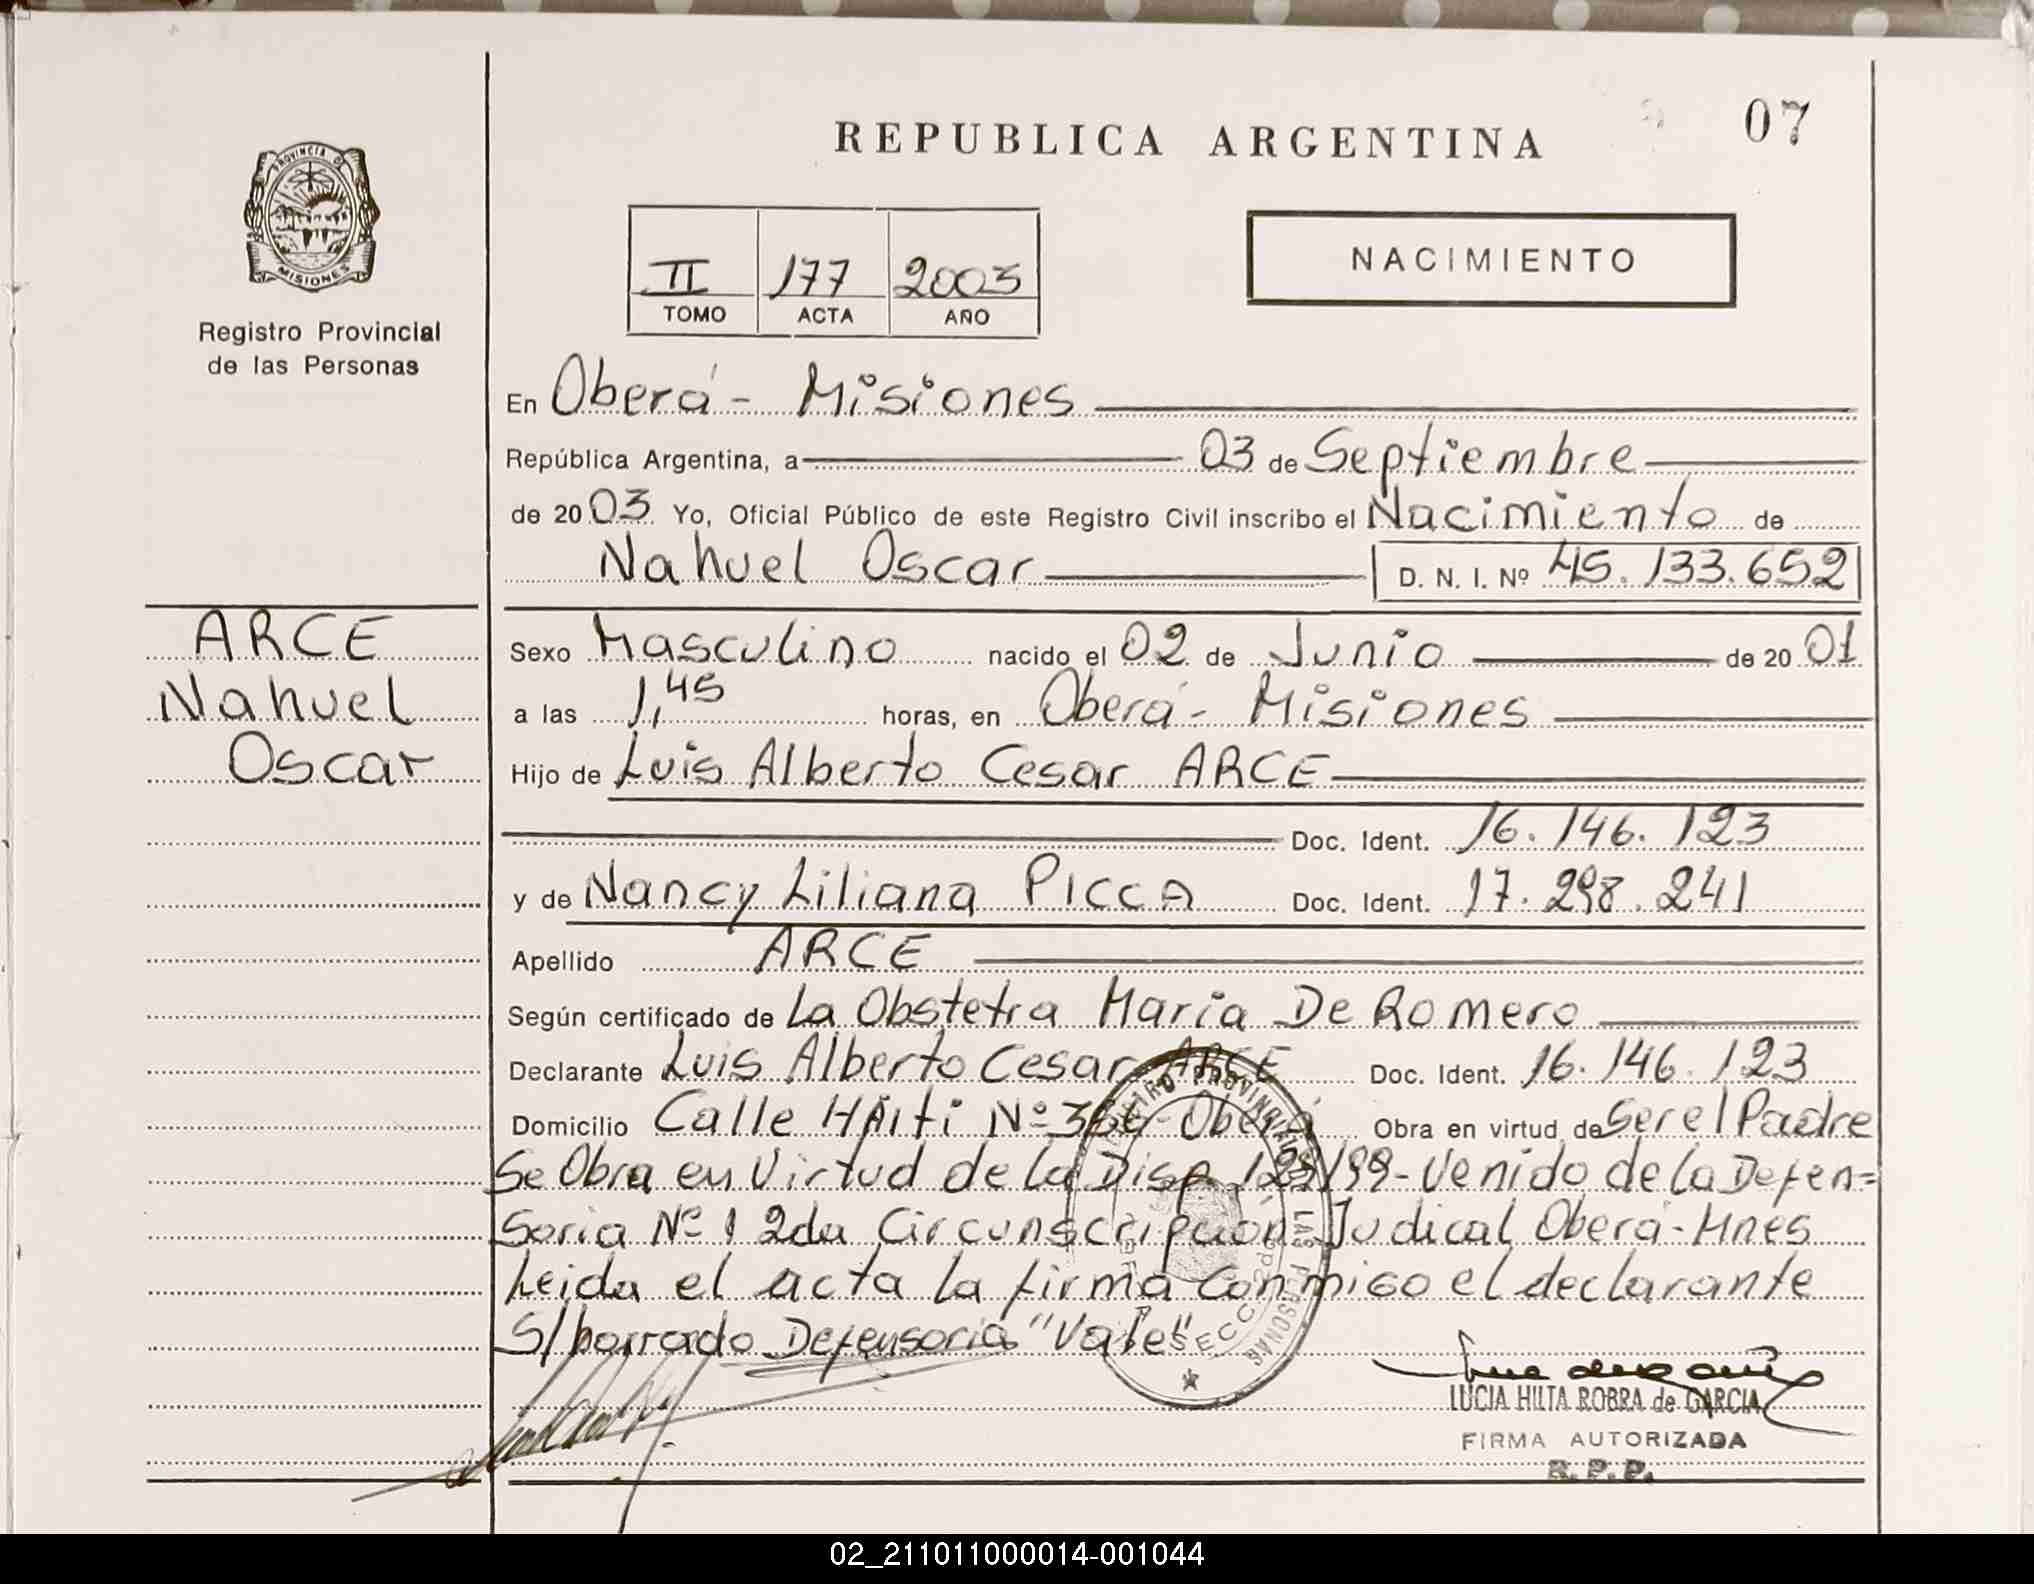 REPUBLICA ARGENTINA
07
PROVINCIA DE
MISIONES
Registro Provincial
de las Personas
II 177 2003
TOMO ACTA AÑO
NACIMIENTO
En Oberá - Misiones
República Argentina, a 03 de Septiembre
de 2003 Yo, Oficial Público de este Registro Civil inscribo el Nacimiento de
Nahuel Oscar D. N. I. Nº 45.133.652
ARCE
Nahuel
Oscar
Sexo Masculino nacido el 02 de Junio de 2001
a las 1,45 horas, en Oberá - Misiones
Hijo de Luis Alberto Cesar ARCE
Doc. Ident. 16.146.123
y de Nancy Liliana PICCA Doc. Ident. 17.298.241
Apellido ARCE
Según certificado de La Obstetra Maria De Romero
Declarante Luis Alberto Cesar ARCE Doc. Ident. 16.146.123
Domicilio Calle HAiti Nº Oberá Obra en virtud de Ser el Padre
Se Obra en Virtud de la Disp. /99 - Venido de la Defen=
soria Nº 1 2da Circunscripción Judical Oberá - Mnes
Leida el acta la firma conmigo el declarante
S/borrado Defensoria "Vale"
LUCIA HILTA ROBRA de GARCIA
FIRMA AUTORIZADA
R. P. P.
02_211011000014-001044